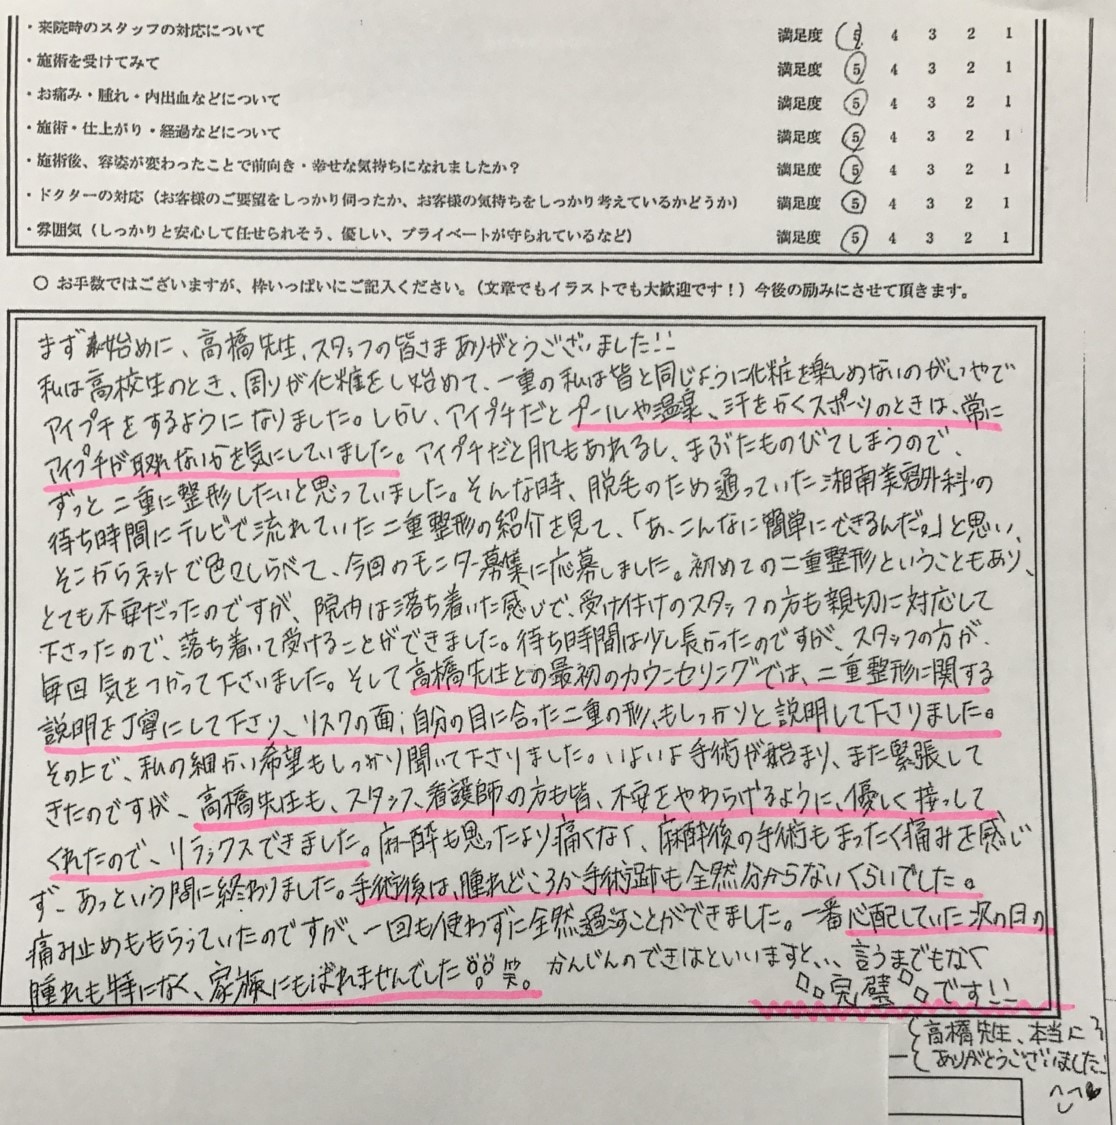 ・来院時のスタッフの対応について 満足度 5 4 3 2 1
・施術を受けてみて 満足度 5 4 3 2 1
・お痛み・腫れ・内出血などについて 満足度 5 4 3 2 1
・施術・仕上がり・経過などについて 満足度 5 4 3 2 1
・施術後、容姿が変わったことで前向き・幸せな気持ちになれましたか? 満足度 5 4 3 2 1
・ドクターの対応(お客様のご要望をしっかり伺ったか、お客様の気持ちをしっかり考えているかどうか) 満足度 5 4 3 2 1
・雰囲気(しっかりと安心して任せられそう、優しい、プライベートが守られているなど) 満足度 5 4 3 2 1
○ お手数ではございますが、枠いっぱいにご記入ください。(文章でもイラストでも大歓迎です!)今後の励みにさせて頂きます。
まず始めに、高橋先生、スタッフの皆さまありがとうございました!!
私は高校生のとき、周りが化粧をし始めて、一重の私は皆と同じように化粧を楽しめないのがいやで
アイプチをするようになりました。しかし、アイプチだとプールや温泉、汗をかくスポーツのときは、常に
アイプチが取れないかを気にしていました。アイプチだと肌もあれるし、まぶたものびてしまうので、
ずっと二重に整形したいと思っていました。そんな時、脱毛のため通っていた湘南美容外科の
待ち時間にテレビで流れていた二重整形の紹介を見て、「あ、こんなに簡単にできるんだ。」と思い、
そこからネットで色々しらべて、今回のモニター募集に応募しました。初めての二重整形ということもあり、
とても不安だったのですが、院内は落ち着いた感じで、受け付けのスタッフの方も親切に対応して
下さったので、落ち着いて受けることができました。待ち時間は少し長かったのですが、スタッフの方が、
毎回気をつかって下さいました。そして高橋先生との最初のカウンセリングでは、二重整形に関する
説明を丁寧にして下さり、リスクの面、自分の目に合った二重の形、もしっかりと説明して下さりました。
その上で、私の細かい希望もしっかり聞いて下さりました。いよいよ手術が始まり、また緊張して
きたのですが、高橋先生も、スタッフ、看護師の方も皆、不安をやわらげるように、優しく接して
くれたので、リラックスできました。麻酔も思ったより痛くなく、麻酔後の手術もまったく痛みを感じ
ず、あっという間に終わりました。手術後は、腫れどころか手術跡も全然分からないくらいでした。
痛み止めももらっていたのですが、一回も使わずに全然過すことができました。一番心配していた次の日の
腫れも特になく、家族にもばれませんでした!!笑。 かんじんのできはといいますと、、、言うまでもなく
完璧です!!
高橋先生、本当に
ありがとうございました!